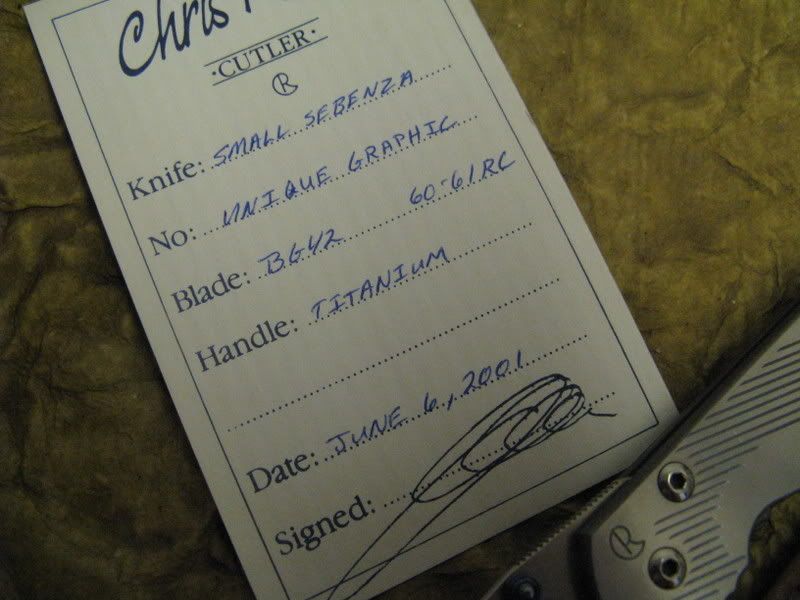 Chris
·CUTLER·
R
Knife: SMALL SEBENZA
No: UNIQUE GRAPHIC
Blade: BG42 60-61RC
Handle: TITANIUM
Date: JUNE 6, 2001
Signed:
R